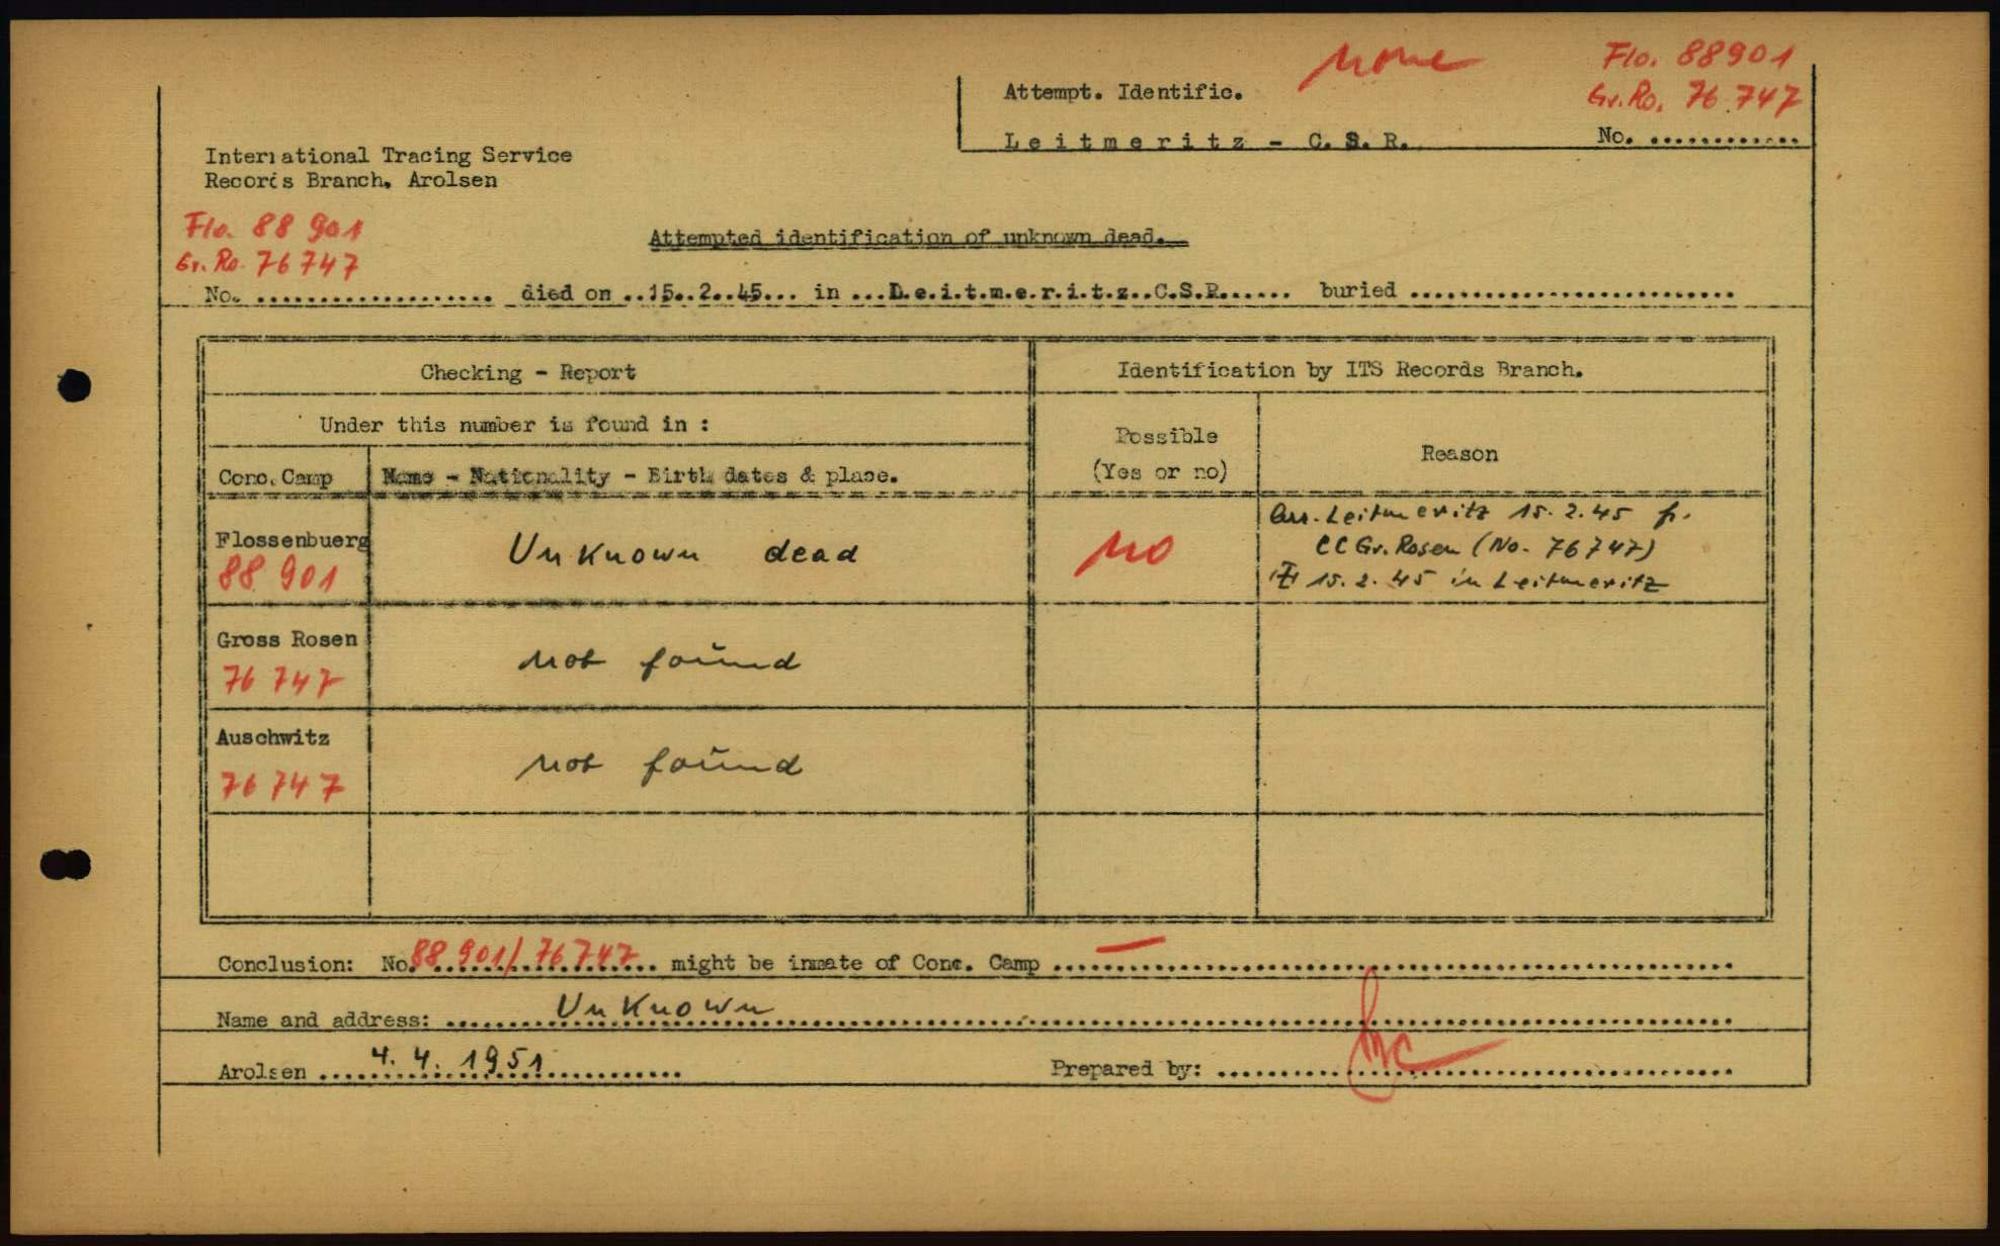 none
Flo. 88901
Attempt. Identific.
Gr.Ro. 76 747
Leitmeritz - C.S.R.
No. ............
International Tracing Service
Records Branch, Arolsen
Flo. 88 901
Gr. Ro. 76747
Attempted identification of unknown dead.
No. ................... died on ..15..2..45... in ...L.e.i.t.m.e.r.i.t.z..C.S.R...... buried ..........................
Checking - Report
Identification by ITS Records Branch.
Under this number is found in :
Possible
(Yes or no)
Reason
Conc. Camp
Name - Nationality - Birth dates & place.
Flossenbuerg
88 901
Unknown dead
no
Arr. Leitmeritz 15. 2. 45 fr.
CC Gr. Rosen (No. 76747)
15. 2. 45 in Leitmeritz
Gross Rosen
76 747
not found
Auschwitz
76 747
not found
Conclusion: No. 88 901/ 76747 might be inmate of Conc. Camp —
Name and address: Unknown
Arolsen 4. 4. 1951
Prepared by: